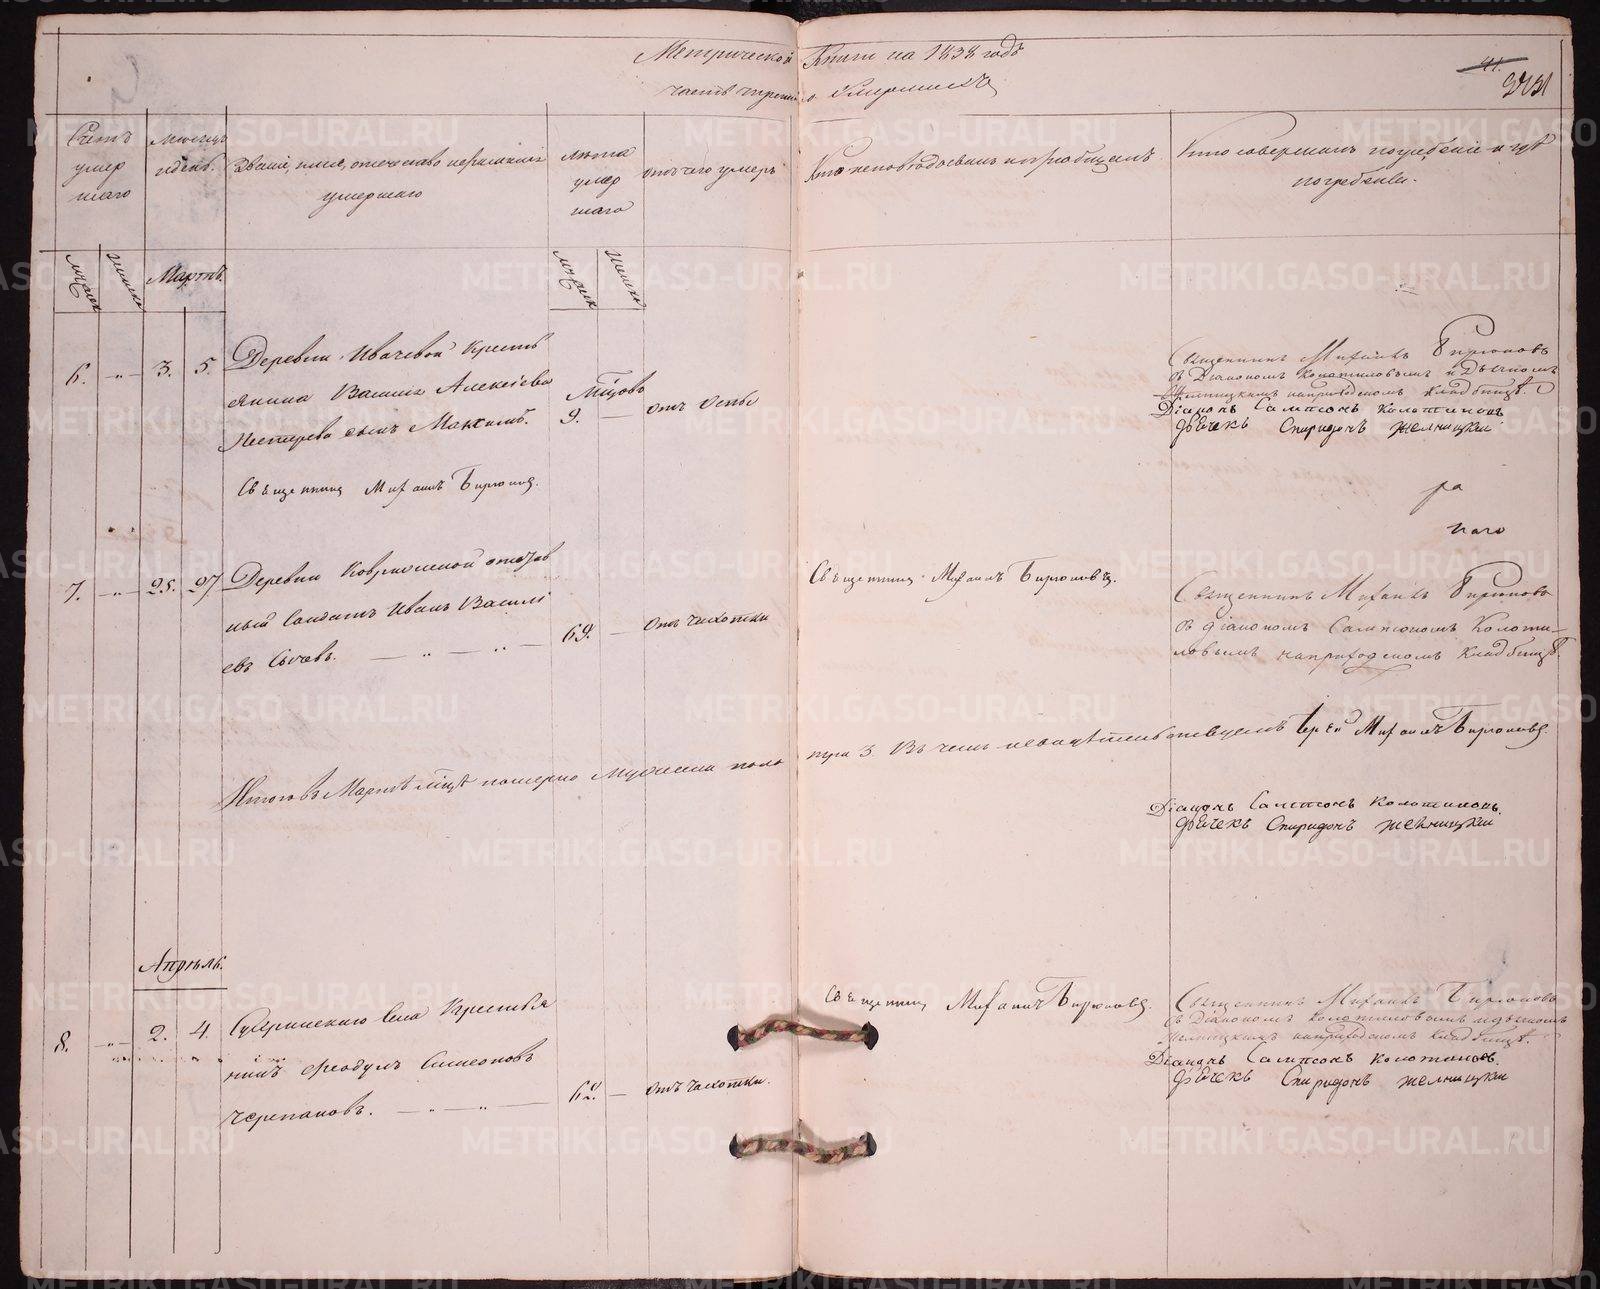 Метрической Книги на 1838 годъ
часть третія о Умершихъ
41.
Счетъ умер шаго
месяцъ и день.
Званіе, имя, отечество и фамилія умершаго
лета умер шаго
отъ чего умеръ
Кто исповедовалъ и пріобщалъ.
Кто совершалъ погребеніе и где погребены.
мужеск
женска
Мартъ.
мужеск
женска
6. 3. 5.
Деревни Ивачевой Крестъ
янина Василья Алексіева
Нестерева сынъ Максимъ.
Мцовъ
9.
отъ Оспы
Священникъ Михаилъ Бирюковъ
съ Діакономъ Колотиловымъ и Дьячкомъ
Желницкимъ на приходскомъ Кладбище.
Діаконъ Сампсонъ Колотиловъ
Дьячекъ Спиридонъ Желницкій
Священникъ Михаилъ Бирюковъ.
ра
наго
7. 25. 27
Деревни Ковригиной отстав
ный Солдатъ Иванъ Василі
евъ Сычевъ.
69.
отъ чахотки
Священникъ Михаилъ Бирюковъ.
Священникъ Михаилъ Бирюковъ
съ діакономъ Сампсономъ Колоти—
ловымъ на приходскомъ Кладбище.
Итого въ Марте мце померло мужеска пола
три 3 Въ чемъ и свидетельствуемъ Іерей Михаилъ Бирюковъ.
Діаконъ Сампсонъ Колотиловъ.
Дьячекъ Спиридонъ Желницкій.
Апрель.
8. 2. 4.
Сугоринскаго Села Крестья
нинъ Феодулъ Симеоновъ
Черепановъ.
62.
отъ чахотки.
Священникъ Михаилъ Бирюковъ.
Священникъ Михаилъ Бирюковъ
съ Діакономъ Колотиловымъ и дьячкомъ
Желницкимъ на приходскомъ Кладбище.
Діаконъ Сампсонъ Колотиловъ.
Дьячекъ Спиридонъ Желницкій
METRIKI.GASO-URAL.RU